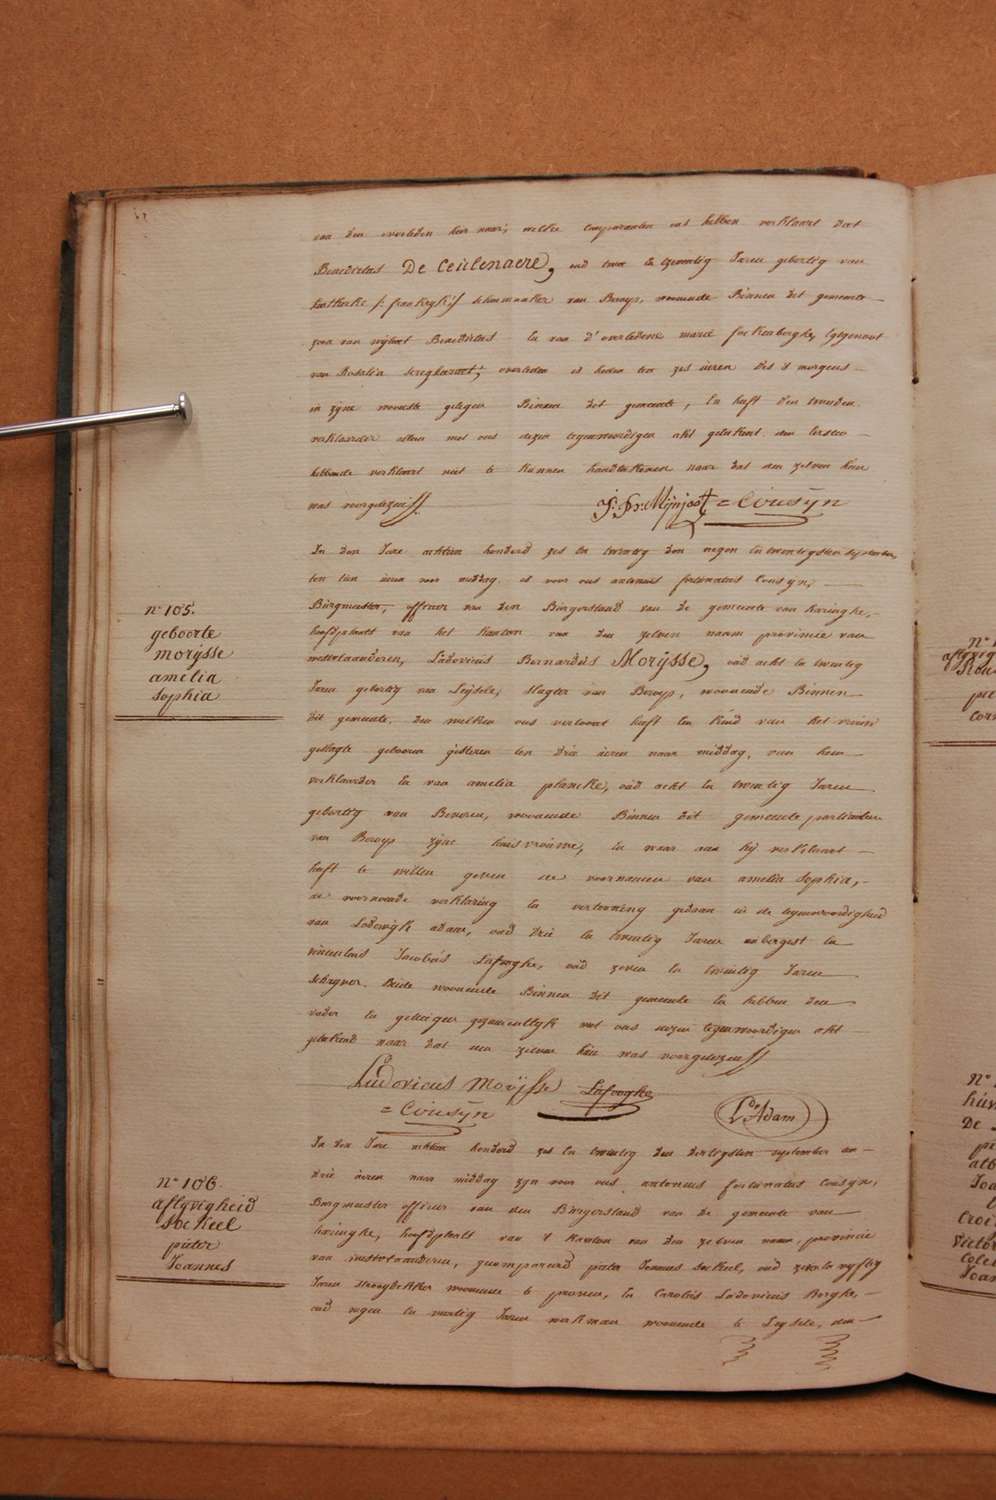 van den overleden hier naar, welke comparanten ons hebben verklaart dat
Benedictus De Ceulenaere, oud twee en twintig Jaren geboortig van
/: frankryk :/ schoenmaker van Beroep, woonende Binnen det gemeente
zoon van wylent Benedictus en van d'overledene marie, Egtgenoot
van Rosalia, overleden is heden ten zes uren des s' morgens
in zyne woonste gelegen Binnen det gemeente, En heeft den tweeden
verklaarder alleen met ons dezen tegenwoordigen akt geteekent. den eersten
hebbende verklaart niet te kunnen handteekenen naar dat den zelven hun
was voorgelezen //
J: Fr: Mijnjoot = Cousÿn
In den Jare achtien honderd zes En twentig den negen en twentigsten september,
ten tien uren voor middag. is voor ons antonius fortunatus Cousyn,
Burgmeester, officier van den Burgerstand van de gemeente van haringhe,
hoofdplaets van het kanton van den zelven naam provincie van
westvlaanderen, Ludovicus Bernardus Morÿsse, oud acht en twentig
Jaren geboortig van Leysele, slagter van Beroep, woonende Binnen
dit gemeente. den welken ons vertoont heeft een kind van het vrouw
geslagte geboren gisteren ten drie uren naar middag, van hem
verklaarder en van amelia plancke, oud acht en twentig Jaren
geboortig van Beveren, woonende Binnen dit gemeente particuliere
van Beroep zyne huisvrouwe, en waar aan hij verklaart
heeft te willen geven de voornamen van amelia sophia,
de voornoemde verklaring en vertooning gedaan in de tegenwoordigheid
van Lodewyk adam, oud drie en twentig Jaren aubergist en
vincentius Jacobus Lafooghe, oud zeven en twentig Jaren
schryver. Beide woonende Binnen dit gemeente en hebben den
vader en getuigen gezamentlyk met ons dezen tegenwoordigen akt
geteekend naar dat den zelven hun was voorgelezen //
Ludovicus Moÿsse Lafooghe
= Cousÿn L^de Adam
In den Jare achtien honderd zes En twentig den dertigsten september om
drie uren naar middag zyn voor ons antonius fortunatus Cousyn,
Burgmeester officier van den Burgerstand van de gemeente van
haringhe, hoofdplaets van 't kanton van den zelven naam, provincie
van westvlaanderen, gecompareerd pieter Joannes sockeel, oud zeven en vyftig
Jaren strooydekker woonende te proven, en Carolus Ludovicus Berghe,
oud negen en veertig Jaren werkman woonende te Leysele, den
n° 105.
geboorte
morÿsse
amelia
sophia
n° 106.
aflyvigheid
sockeel
pieter
Joannes